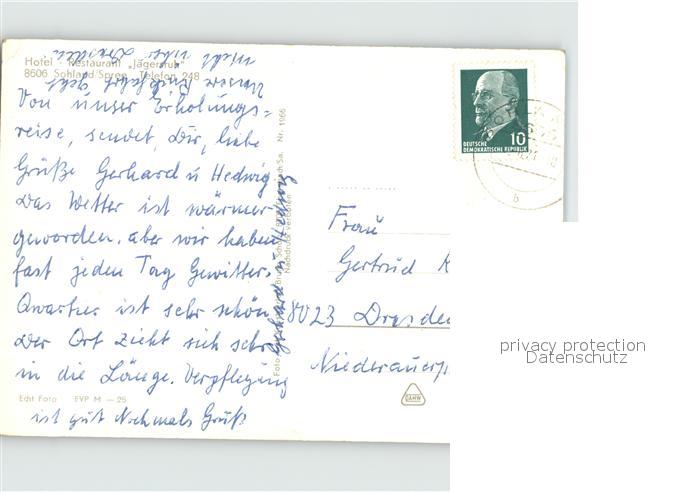 Hotel - Restaurant „Jägersruh"
8606 Sohland/Spree - Telefon 248
Unsere Rückfahrt geht
nicht über Dresden
Von unser Erholungs=
reise, sendet Dir, liebe
Grüße Gerhard u Hedwig
Das Wetter ist wärmer
geworden, aber wir haben
fast jeden Tag Gewitter.
Quartier ist sehr schön
Der Ort zieht sich sehr
in die Länge. Verpflegung
ist gut Nochmals Gruß
Gerhard u Hedwig
Echt Foto EVP M — 25
Foto
Nr. 1066
Nachdruck verboten
DEUTSCHE
DEMOKRATISCHE REPUBLIK
10
b
Frau
Gertrud K
8023 Dresden
Niederauerp
privacy protection
Datenschutz